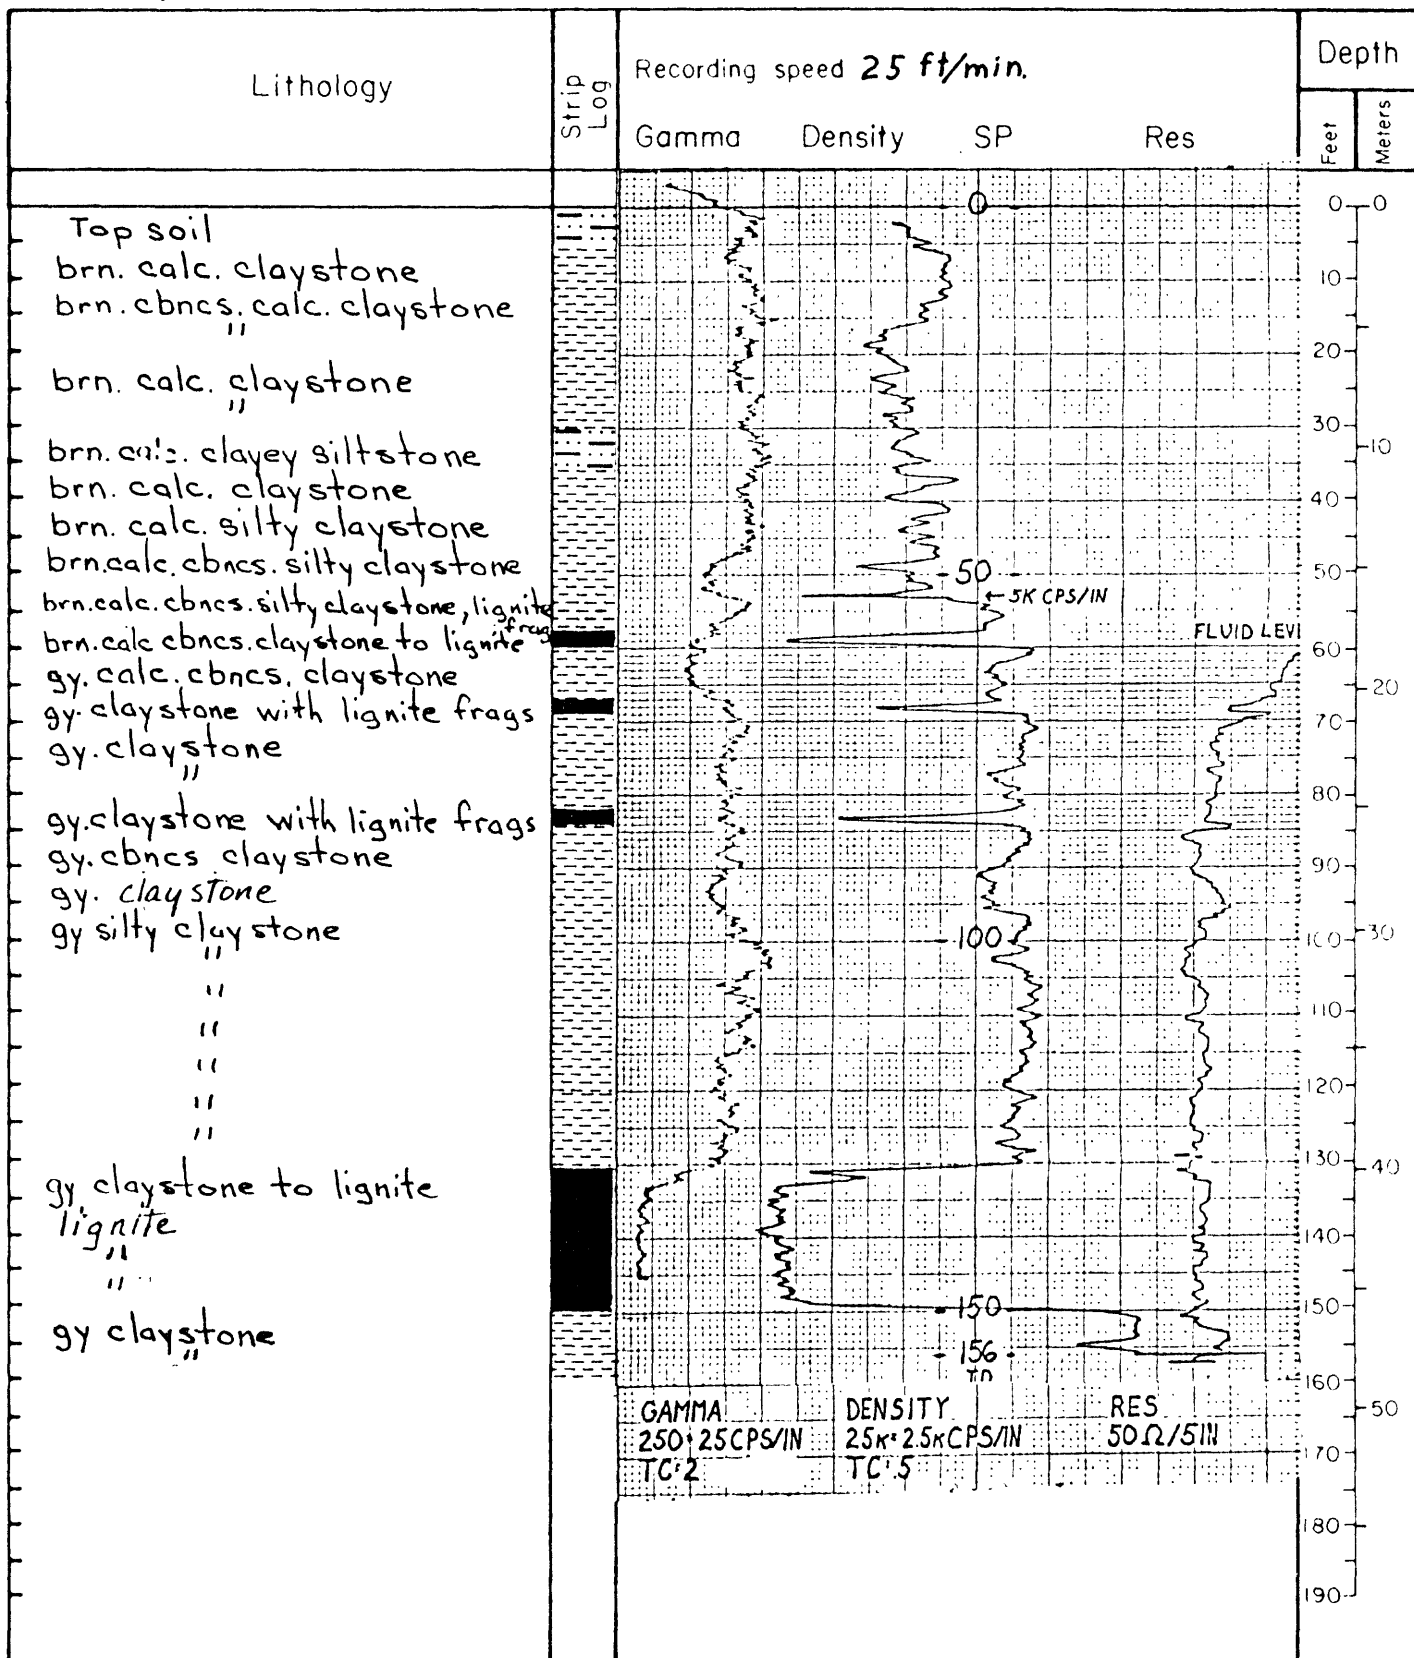 Lithology
Strip Log
Recording speed 25 ft/min.
Gamma Density SP Res
Depth
Feet
Meters
Top soil
brn. calc. claystone
brn. cbncs. calc. claystone
"
brn. calc. claystone
"
brn. calc. clayey siltstone
brn. calc. claystone
brn. calc. silty claystone
brn.calc.cbncs. silty claystone
brn.calc.cbncs.silty claystone, lignite frags
brn.calc cbncs.claystone to lignite
gy. calc. cbncs. claystone
gy. claystone with lignite frags
gy. claystone
"
gy.claystone with lignite frags
gy. cbncs claystone
gy. claystone
gy silty claystone
"
"
"
"
"
"
gy claystone to lignite
lignite
"
"
gy claystone
"
0
50
← 5K CPS/IN
FLUID LEVE
100
150
156
TD
GAMMA
250 25 CPS/IN
TC 2
DENSITY
25K 2.5K CPS/IN
TC .5
RES
50 Ω/5IN
0
10
20
30
40
50
60
70
80
90
100
110
120
130
140
150
160
170
180
190
0
10
20
30
40
50